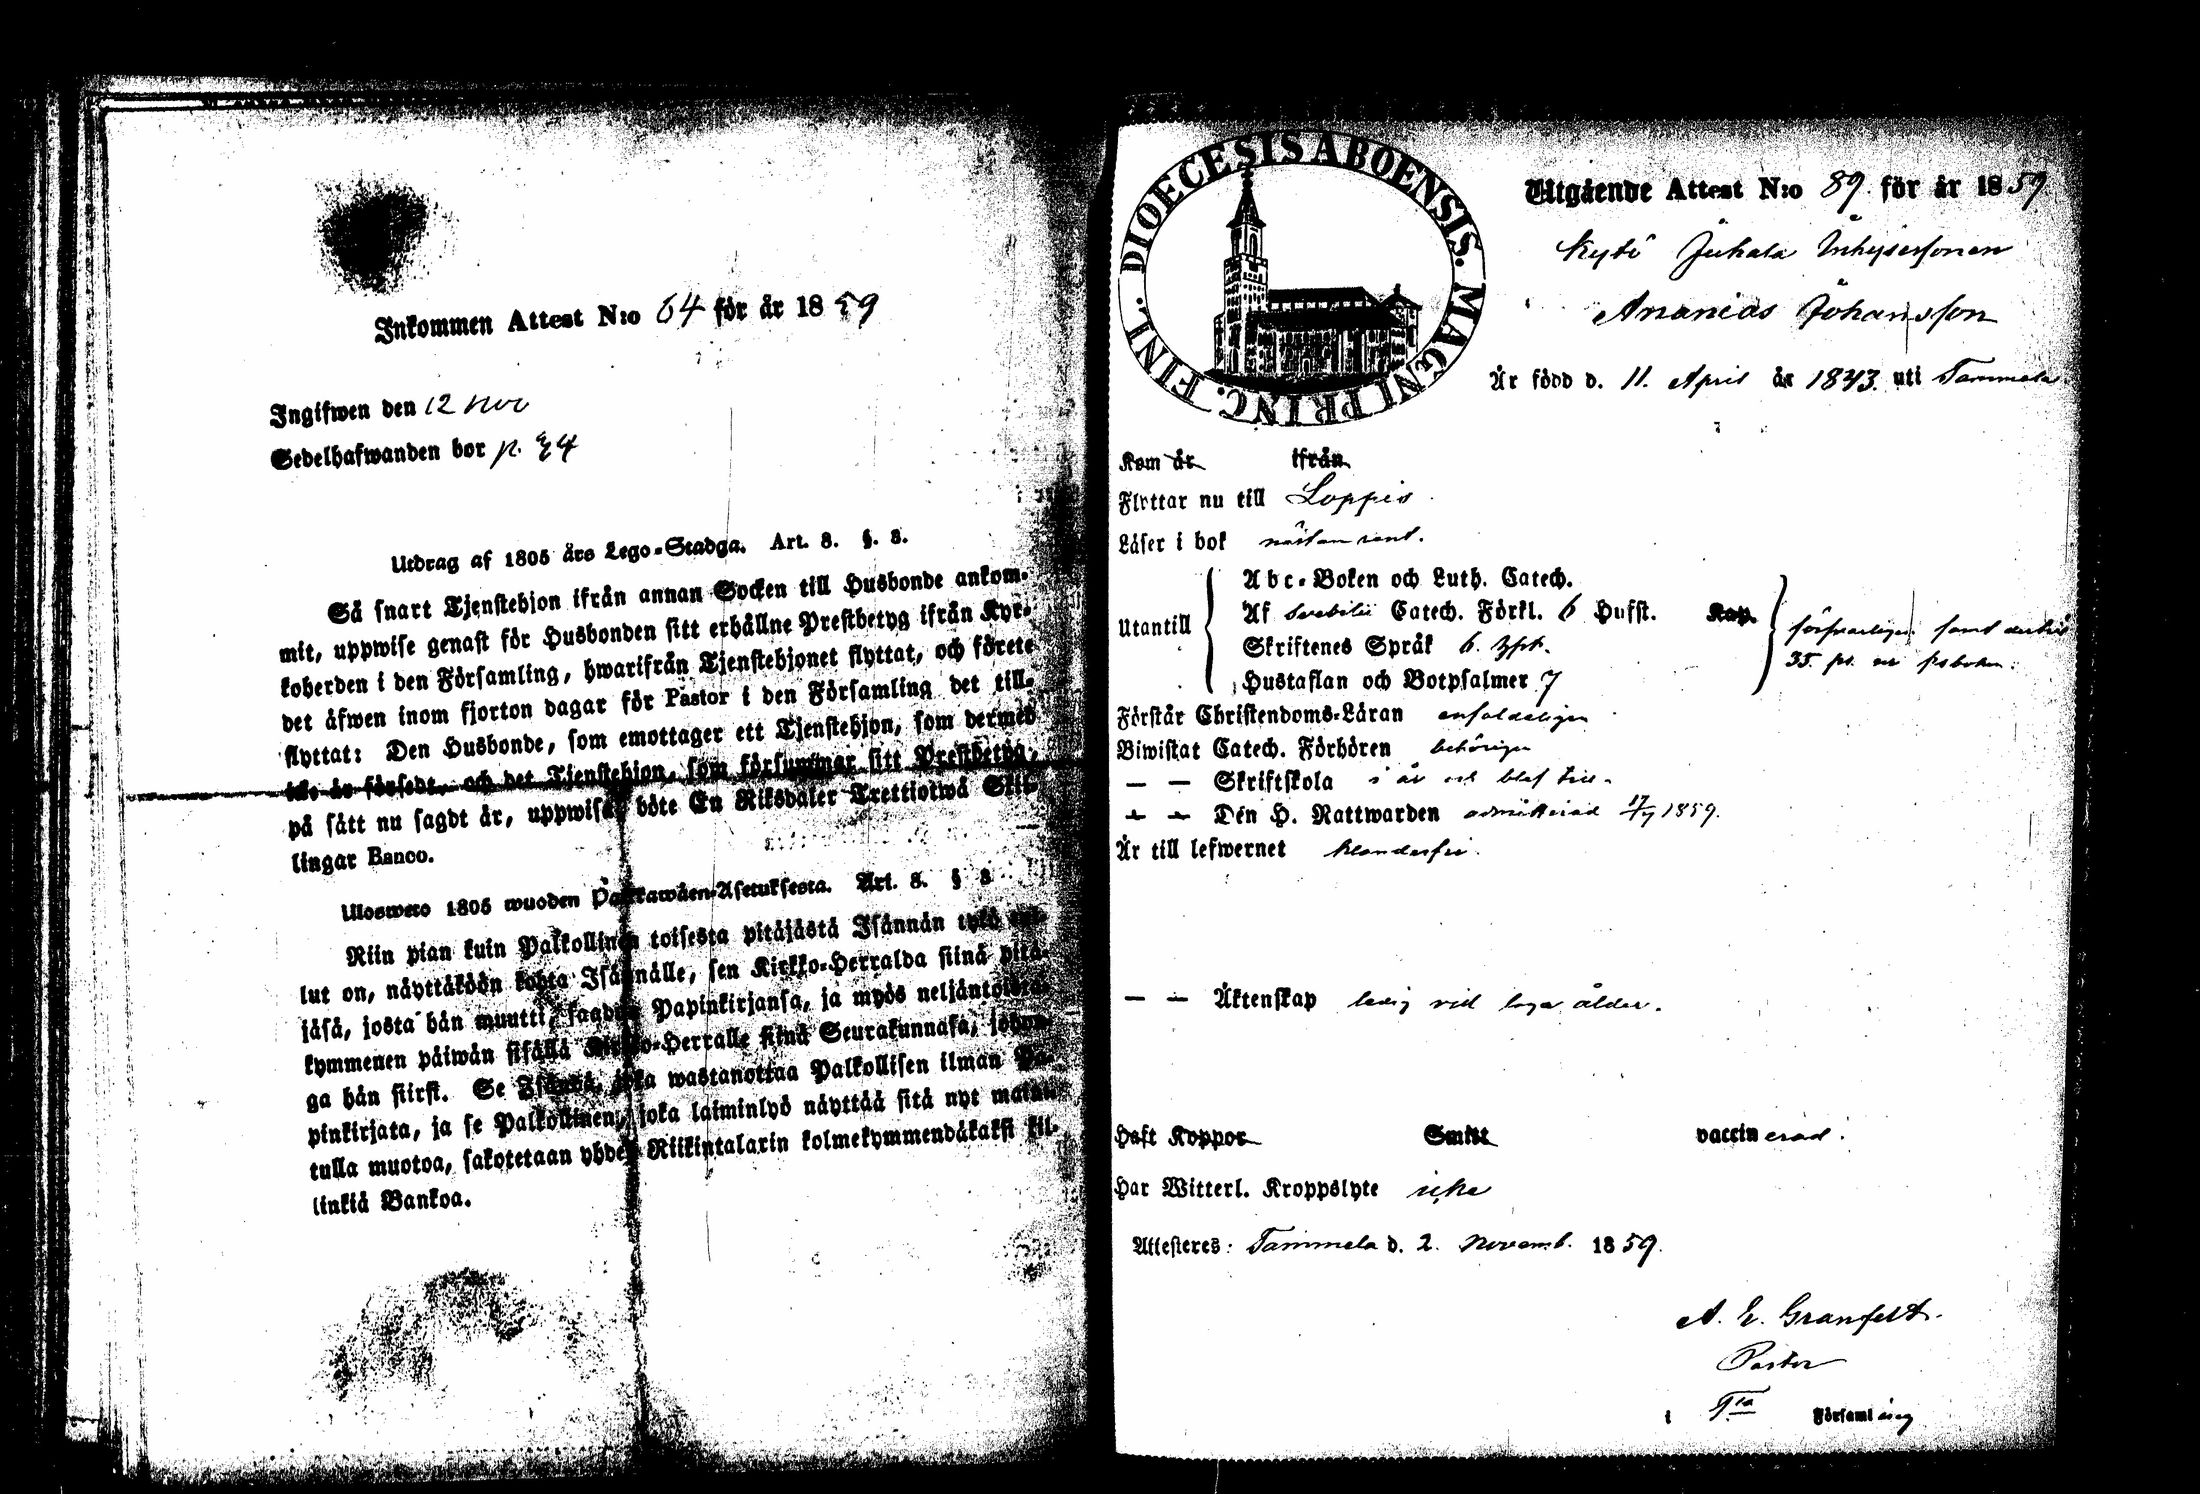 Inkommen Attest N:o 64 för år 1859
Ingifwen den 12 nov
Sedelhafwanden bor p.
Utdrag af 1805 års Lego-Stadga. Art. 8. §. 8.
Så snart Tjenstehjon ifrån annan Socken till Husbonde ankom-
mit, uppwise genast för Husbonden sitt erhållne Prestbetyg ifrån Kyr-
koherden i den Församling, hwarifrån Tjenstehjonet flyttat, och förete
det äfwen inom fjorton dagar för Pastor i den Församling det till-
flyttat: Den Husbonde, som emottager ett Tjenstehjon, som dermed
icke är försedt, och det Tjenstehjon, som försummar sitt Prestbetyg,
på sätt nu sagdt är, uppwisa, böte En Riksdaler Trettiotwå Skil-
lingar Banco.
Ulosweto 1805 wuoden Palkkawäen-Asetuksesta. Art. 8. § 8
Niin pian kuin Palkollinen toisesta pitäjästä Isännän tykö tul-
lut on, näyttäköön kohta Isännälle, sen Kirkko-Herralda siinä pitä-
jäsä, josta hän muutti, saadun Papinkirjansa, ja myös neljäntoista-
kymmenen päiwän sisällä Kirkko-Herralle siinä Seurakunnasa, johon-
ga hän siirsi. Se Isändä, joka wastanottaa Palkollisen ilman Pa-
pinkirjata, ja se Palkollinen, joka laiminlyö näyttää sitä nyt mainit-
tulla muotoa, sakotetaan yhden Riikintalarin kolmekymmendäkaksi kil-
linkiä Bankoa.
DIOECESIS ABOENSIS. MAGNI PRINC. FINL.
Utgående Attest N:o 89. för år 1859
Kytö Jukala Inhysersonen
Ananias Johansson
Är född d. 11. April år 1843. uti Tammela
Kom år ifrån
Flyttar nu till Loppis
Läser i bok nästan rent.
Utantill
Abc-Boken och Luth. Catech.
Af Svebilii Catech. Förkl. 6 Hufst. Kap.
Skriftenes Språk 6.
Hustaflan och Botpsalmer 7
försvarligen samt
35. ps. ur psboken.
Förstår Christendoms-Läran enfaldeligen
Biwistat Catech. Förhören behörigen
— — Skriftskola i år och blef till-
— — Den H. Nattwarden admitterad 17/7 1859.
Är till lefwernet klanderfri.
— — Äktenskap ledig vid laga ålder.
Haft Koppor Smitt vaccinerad.
Har Witterl. Kroppslyte icke
Attesteres: Tammela d. 2. Novemb. 1859.
A. E. Granfelt.
Pastor
i Församling